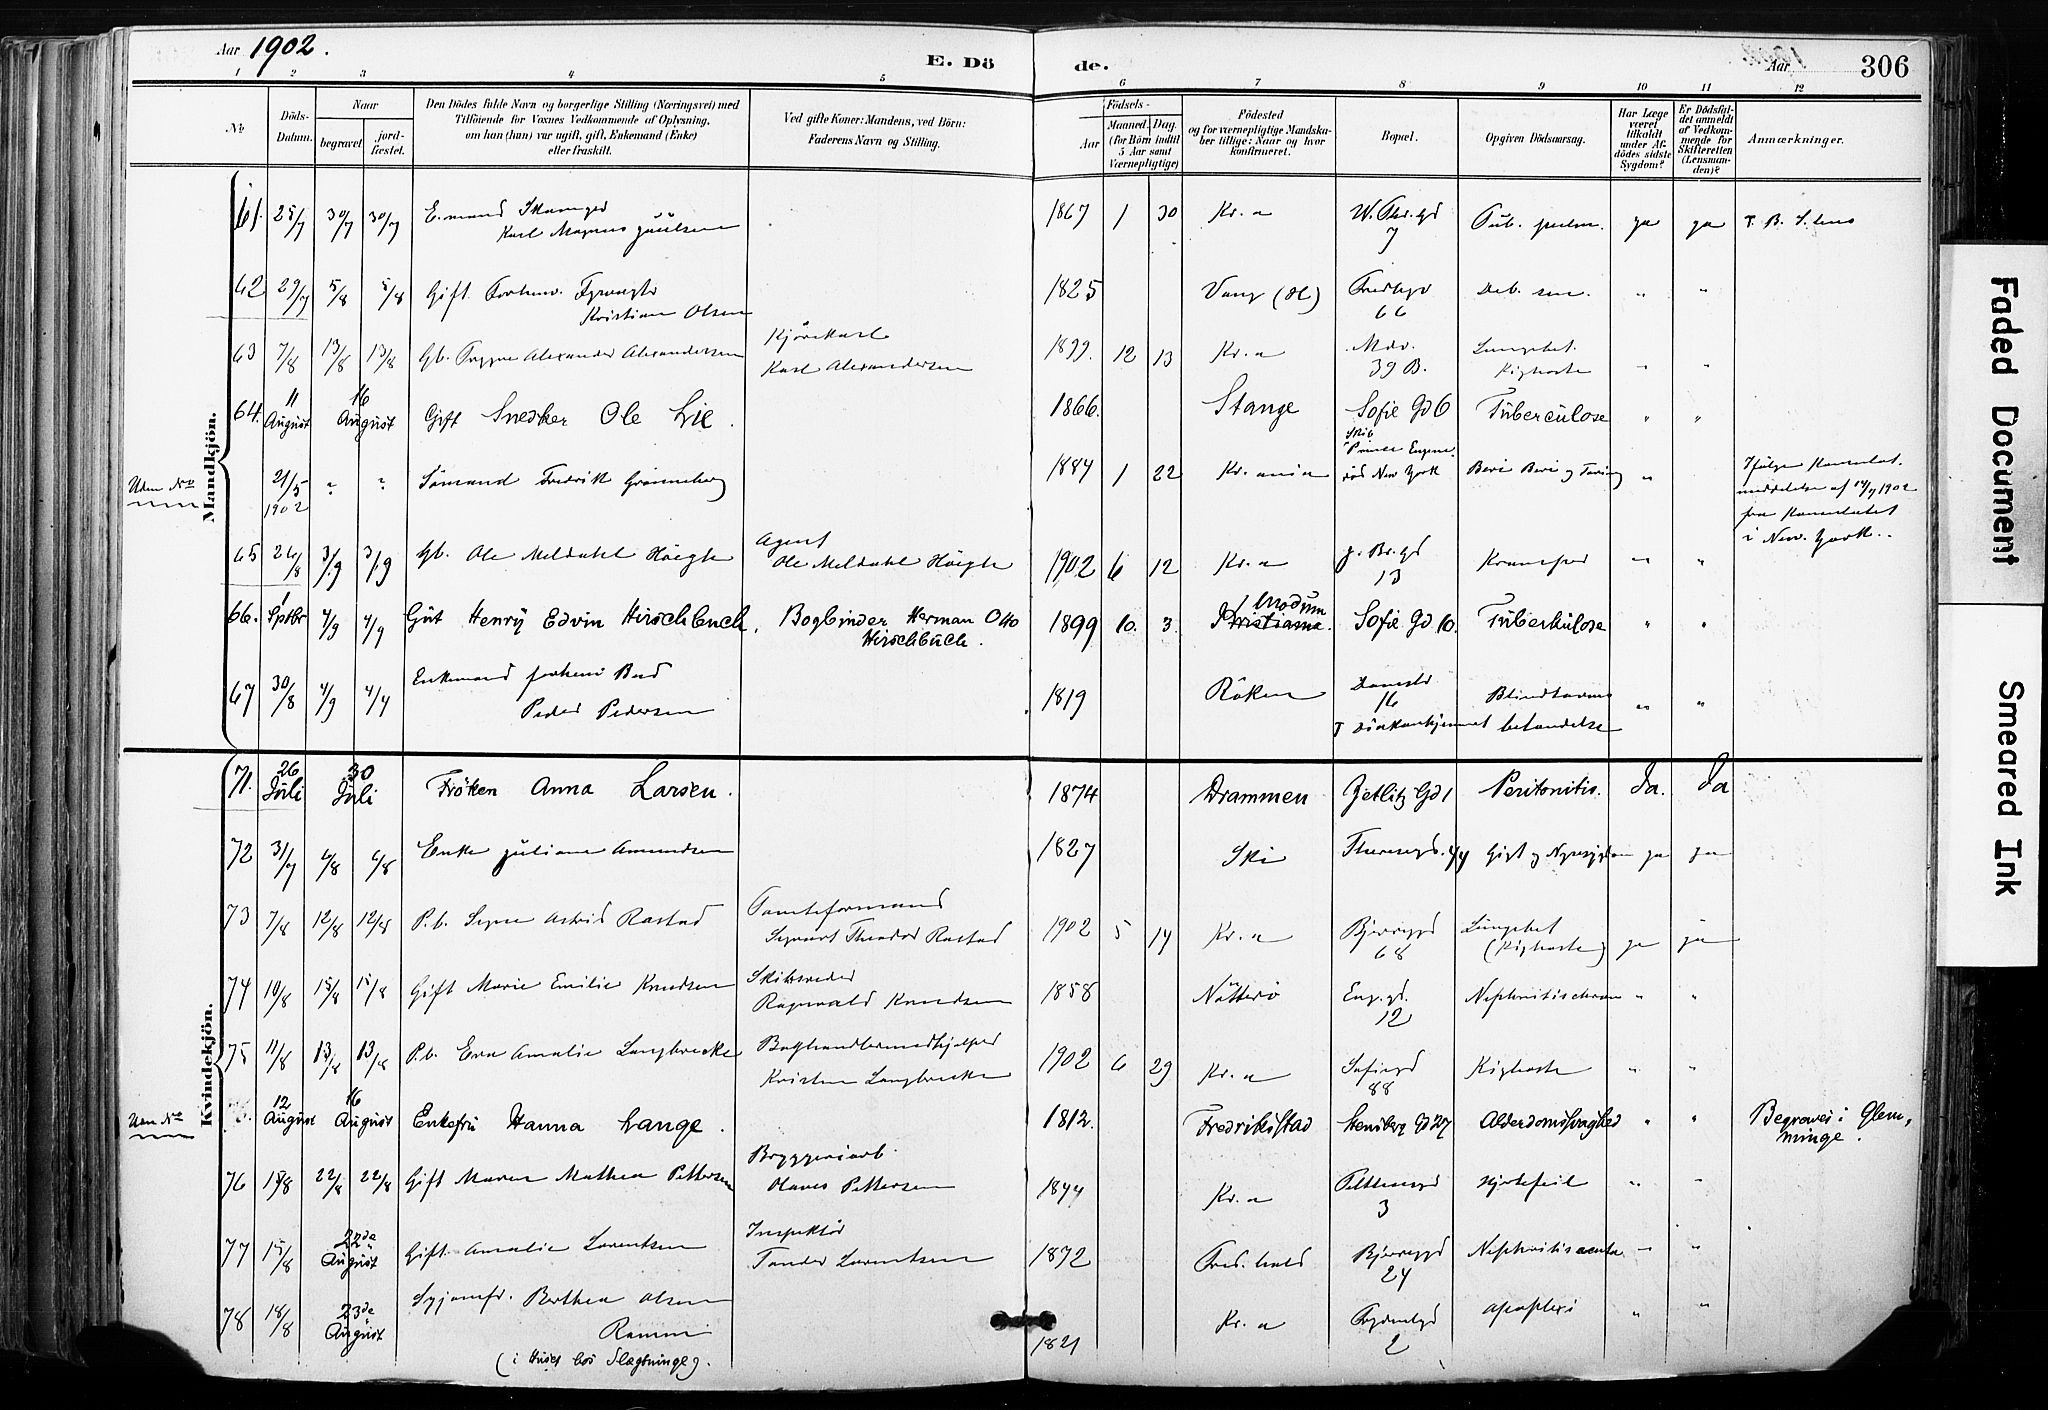 Aar 1902.
E. Dö
de.
Aar
306
1 2 3 4 5 6 7 8 9 10 11 12
No
Döds-Datum.
Naar
begravet
jord-fæstet.
Den Dödes fulde Navn og borgerlige Stilling (Næringsvei) med
Tilföiende for Voxnes Vedkommende af Oplysning,
om han (hun) var ugift, gift, Enkemand (Enke)
eller fraskilt.
Ved gifte Koner: Mandens, ved Börn:
Faderens Navn og Stilling.
Födsels-
Aar
Maaned. Dag
(for Börn indtil
5 Aar samt
Værnepligtige)
Födested
og for værnepligtige Mandska-
ber tillige: Naar og hvor
konfirmeret.
Bopæl.
Opgiven Dödsaarsag.
Har Læge
været
tilkaldt
under Af-
dödes sidste
Sygdom?
Er Dödsfal-
det anmeldt
af Vedkom-
mende for
Skifteretten
(Lensman-
den)?
Anmærkninger.
Mandkjön.
61. 25/7 30/7 30/7 E.mand
Karl Magnus Juulsen
1867 1 30 Kr.a
7
Tub. pulm. ja ja
62 29/7 5/8 5/8 Gift Forhenv.
Kristian Olsen
1825 Vang (H) Fredbgv
66
Deb. sen. " "
63 7/8 13/8 13/8 Gb. Trygve Alexander Alexandersen Kjörekarl
Karl Alexandersen
1899. 12 13 Kr.a
39 B.
Lungebet.
Kighoste " "
64. 11 August 16 August Gift Snedker Ole Lie. 1866. Stange Sofie Gd 6 Tuberculose " "
Uden No 21/5 1902 ? ? Sömand Fredrik Grönneberg 1884 1 22 Kr.ania
Skib
"Prince Eugene"
ved New York
Beri Beri og Tæring "
Ifölge Konsulat.
meddelelse af 14/7 1902
fra Konsulatet
i New York.
65 26/8 3/9 3/9 Gb. Ole Meldahl Höegh Agent
Ole Meldahl Höegh
1902 6 12 Kr.a J. Br. gd
13
Krampe " "
66. 1 Sptbr 4/9 4/9 Gut Henry Edvin Hirschbuch. Bogbinder Herman Otto
Hirschbuch.
1899 10. 3. Modum
Kristiania. Sofie Gd 10. Tuberkulose " "
67 30/8 4/9 4/9 Enkemand forhenv Bud
Peder Pedersen
1819 Röken
16
Diakonhjemmet
Blindtarms
betændelse " "
Kvindekjön.
71. 26 Juli 30 Juli Fröken Anna Larsen. 1874 Drammen Zetlitz Gd 1 Peritonitis. Ja. Ja
72 31/7 6/8 6/8 Enke Juliane Amundsen 1827 Ski Theresegd. 44 Gigt og Nyresygdom ja ja
73 7/8 12/8 12/8 P.b. Signe Astrid Rastad Tomteformand
Sigvart Theodor Rastad
1902 5 14 Kr.a Bjerregd
68
Lungebet
(Kighoste) ja ja
74 10/8 15/8 15/8 Gift Marie Emilie Knudsen Skibsreder
Ragnvald Knudsen
1858 Nötterö Eug. gd.
12
Nephritis chron " "
75 11/8 13/8 13/8 P.b. Eva Amalie Langbrekke Boghandlermedhjelper
Kristian Langbrekke
1902 6 29 Kr.a Sofiegd
88
Kighoste " "
Uden No 12 August 16 August Enkefru Hanna Lange. 1812. Fredrikstad Stensberg Gd 27 Alderdomssvaghed " " Begraves i Glem-
minge.
76 15/8 22/8 22/8 Gift Maren Mathea Pettersen Bryggeriarb.
Olaves Pettersen
1844 Kr.a Piltesengd
3
Hjertefeil " "
77 15/8 22de August Gift. Amalie Lorentsen Inspektör
Lorentsen
1872 Fred.hald Bjerregd
24
Nephritis acuta " "
78 18/8 23de August Syjomfr. Berthea Olsen
(i Huset hos Slægtninge).
1821 Kr.a Frydenlgd
2
Apoplexi " "
Faded Document
Smeared Ink